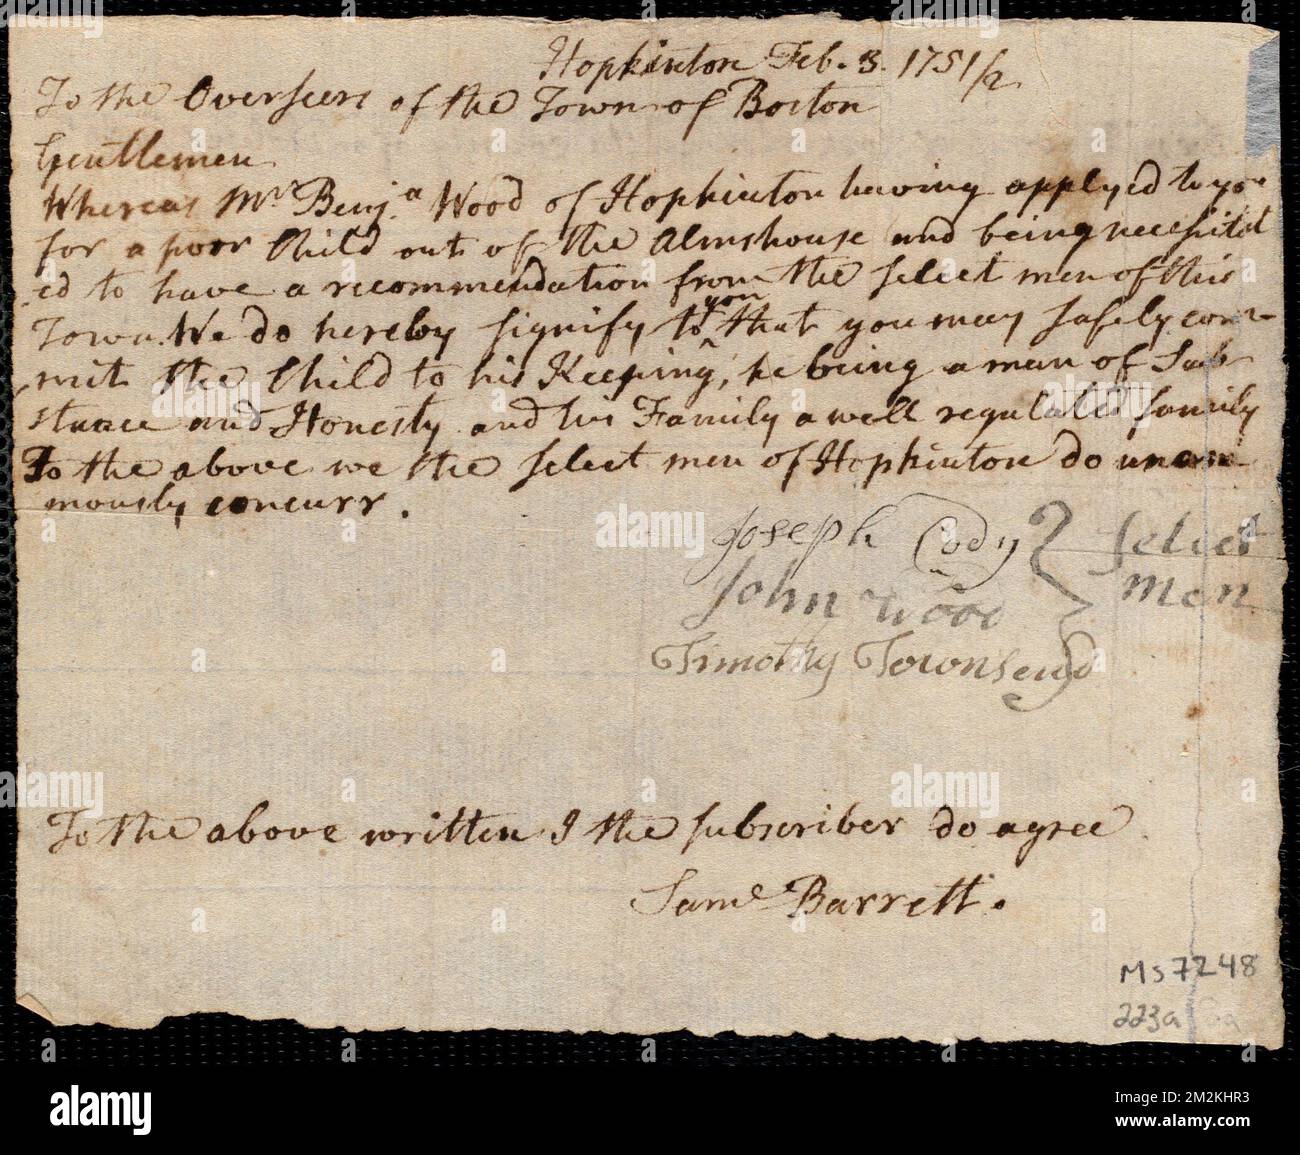 Hopkinton Feb. 3. 1751/2
To the Overseers of the Town of Boston
Gentlemen
Whereas Mr Benja. Wood of Hopkinton having applyed to you
for a poor Child out of the Almshouse and being necessitat
ed to have a recommendation from the select men of this
Town. We do hereby signify to you that you may safely com
mit the Child to his Keeping, he being a man of Sub
stance and Honesty and his Family a well regulated family
To the above we the select men of Hopkinton do unani
mously concurr.
Joseph Cody
John Wood
Timothy Townsend
Select
Men
To the above written I the subscriber do agree
Saml Barrett.
Ms 7248
223a
alamy
Image ID: 2M2KHR3
www.alamy.com